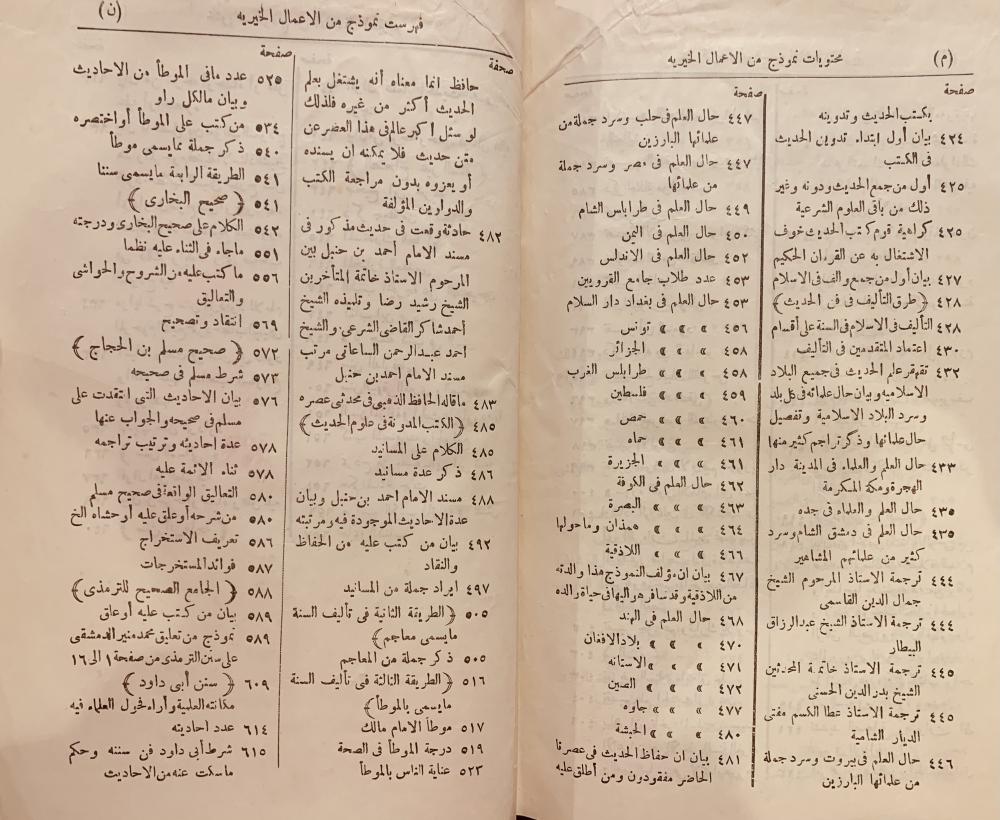 (م)
محتويات نموذج من الاعمال الخيريه
صفحة
يكتب الحديث وتدوينه
٤٢٤ بيان أول ابتداء تدوين الحديث
فى الكتب
٤٢٥ أول من جمع الحديث ودونه وغير
ذلك من باقى العلوم الشرعية
٤٢٥ كراهية قوم كتب الحديث خوف
الاشتغال به عن القرآن الحكيم
٤٢٧ بيان أول من جمع وألف فى الاسلام
٤٢٨ ﴿ طرق التأليف فى فن الحديث ﴾
٤٢٨ التأليف فى الاسلام فى السنة على أقسام
٤٣٠ اعتماد المتقدمين فى التأليف
٤٣٢ تقهقر علم الحديث فى جميع البلاد
الاسلاميه وبيان حال علمائه فى كل بلد
وسرد البلاد الاسلامية وتفصيل
حال علمائها وذكر تراجم كثير منها
٤٣٣ حال العلم والعلماء فى المدينة دار
الهجرة ومكة المكرمة
٤٣٥ حال العلم والعلماء فى جده
٤٣٥ حال العلم فى دمشق الشام وسرد
كثير من علمائهم المشاهير
٤٤٤ ترجمة الاستاذ المرحوم الشيخ
جمال الدين القاسمى
٤٤٤ ترجمة الاستاذ الشيخ عبدالرزاق
البيطار
٤٤٥ ترجمة الاستاذ خاتمة المحدثين
الشيخ بدر الدين الحسنى
٤٤٥ ترجمة الاستاذ عطا الكسم مفتى
الديار الشامية
٤٤٦ حال العلم فى بيروت وسرد جملة
من علمائها البارزين
صفحة
٤٤٧ حال العلم فى حلب وسرد جملة من
علمائها البارزين
٤٤٧ حال العلم فى مصر وسرد جملة
من علمائها
٤٤٩ حال العلم فى طرابلس الشام
٤٥٠ حال العلم فى اليمن
٤٥٢ حال العلم فى الاندلس
٤٥٣ عدد طلاب جامع القرويين
٤٥٣ حال العلم فى بغداد دار السلام
٤٥٦ » » » تونس
٤٥٨ » » » الجزائر
٤٥٨ » » » طرابلس الغرب
٤٥٩ » » » فلسطين
٤٦٠ » » » حمص
٤٦١ » » » حماه
٤٦١ » » » الجزيرة
٤٦٢ حال العلم فى الكوفة
٤٦٣ » » » البصرة
٤٦٤ » » » همذان وما حولها
٤٦٦ » » » اللاذقية
٤٦٧ بيان ان مؤلف النموذج هذا والدته
من اللاذقية وقد سافر هو اليها فى حياة والده
٤٦٨ حال العلم فى الهند
٤٧٠ » » » بلاد الافغان
٤٧١ » » » الاستانه
٤٧٢ » » » الصين
٤٧٧ » » » جاوه
٤٨٠ » » » الحبشة
٤٨١ بيان ان حفاظ الحديث فى عصرنا
الحاضر مفقودون ومن أطلق عليه
فهرست نموذج من الاعمال الخيريه
(ن)
صحفة
حافظ انما معناه أنه يشتغل بعلم
الحديث أكثر من غيره فلذلك
لو سئل أكبر عالم فى هذا العصر عن
متن حديث فلا يمكنه ان يسنده
أو يعزوه بدون مراجعة الكتب
والدوارين المؤلفة
٤٨٢ حادثة وقعت فى حديث مذكور فى
مسند الامام أحمد بن حنبل بين
المرحوم الاستاذ خاتمة المتأخرين
الشيخ رشيد رضا وتلميذه الشيخ
أحمد شاكر القاضى الشرعى والشيخ
احمد عبدالرحمن الساعاتى مرتب
مسند الامام احمد بن حنبل
٤٨٣ ماقاله الحافظ الذهبى فى محدثى عصره
٤٨٥ ﴿ الكتب المدونة فى علوم الحديث ﴾
٤٨٥ الكلام على المسانيد
٤٨٦ ذكر عدة مسانيد
٤٨٨ مسند الامام احمد بن حنبل وبيان
عدة الاحاديث الموجودة فيه ومرتبته
٤٩٢ بيان من كتب عليه من الحفاظ
والنقاد
٤٩٧ ايراد جملة من المسانيد
٥٠٥ ﴿ الطريقة الثانية فى تأليف السنة
مايسمى معاجم ﴾
٥٠٥ ذكر جملة من المعاجم
٥١٦ ﴿ الطريقة الثالثة فى تأليف السنة
مايسمى بالموطأ ﴾
٥١٧ موطأ الامام مالك
٥١٩ درجة الموطأ فى الصحة
٥٢٣ عناية الناس بالموطأ
صفحة
٥٢٥ عدد مافى الموطأ من الاحاديث
وبيان مالكل راو
٥٣٤ من كتب على الموطأ أو اختصره
٥٤٠ ذكر جملة مما يسمى موطأ
٥٤١ الطريقة الرابعة مايسمى سننا
٥٤١ ﴿ صحيح البخارى ﴾
٥٤٢ الكلام على صحيح البخارى ودرجته
٥٥١ ماجاء فى الثناء عليه نظما
٥٥٦ ما كتب عليه من الشروح والحواشى
والتعاليق
٥٦٩ انتقاد وتصحيح
٥٧٢ ﴿ صحيح مسلم بن الحجاج ﴾
٥٧٣ شرط مسلم فى صحيحه
٥٧٦ بيان الاحاديث التى انتقدت على
مسلم فى صحيحه والجواب عنها
٥٧٨ عدة احاديثه وترتيب تراجمه
٥٧٨ ثناء الائمة عليه
٥٨٠ التعاليق الواقعة فى صحيح مسلم
٥٨٠ من شرحه أو علق عليه أو حشاه الخ
٥٨٦ تعريف الاستخراج
٥٨٧ فوائد المستخرجات
٥٨٨ ﴿ الجامع الصحيح للترمذى ﴾
٥٨٩ بيان من كتب عليه أو علق
٥٨٩ نموذج من تعليق محمد منير الدمشقى
على سنن الترمذى من صفحة ١ الى ١٦
٦٠٩ ﴿ سنن أبى داود ﴾
مكانته العلمية وآراء فحول العلماء فيه
٦١٤ عدد احاديثه
٦١٥ شرط أبى داود فى سننه وحكم
ماسكت عنه من الاحاديث